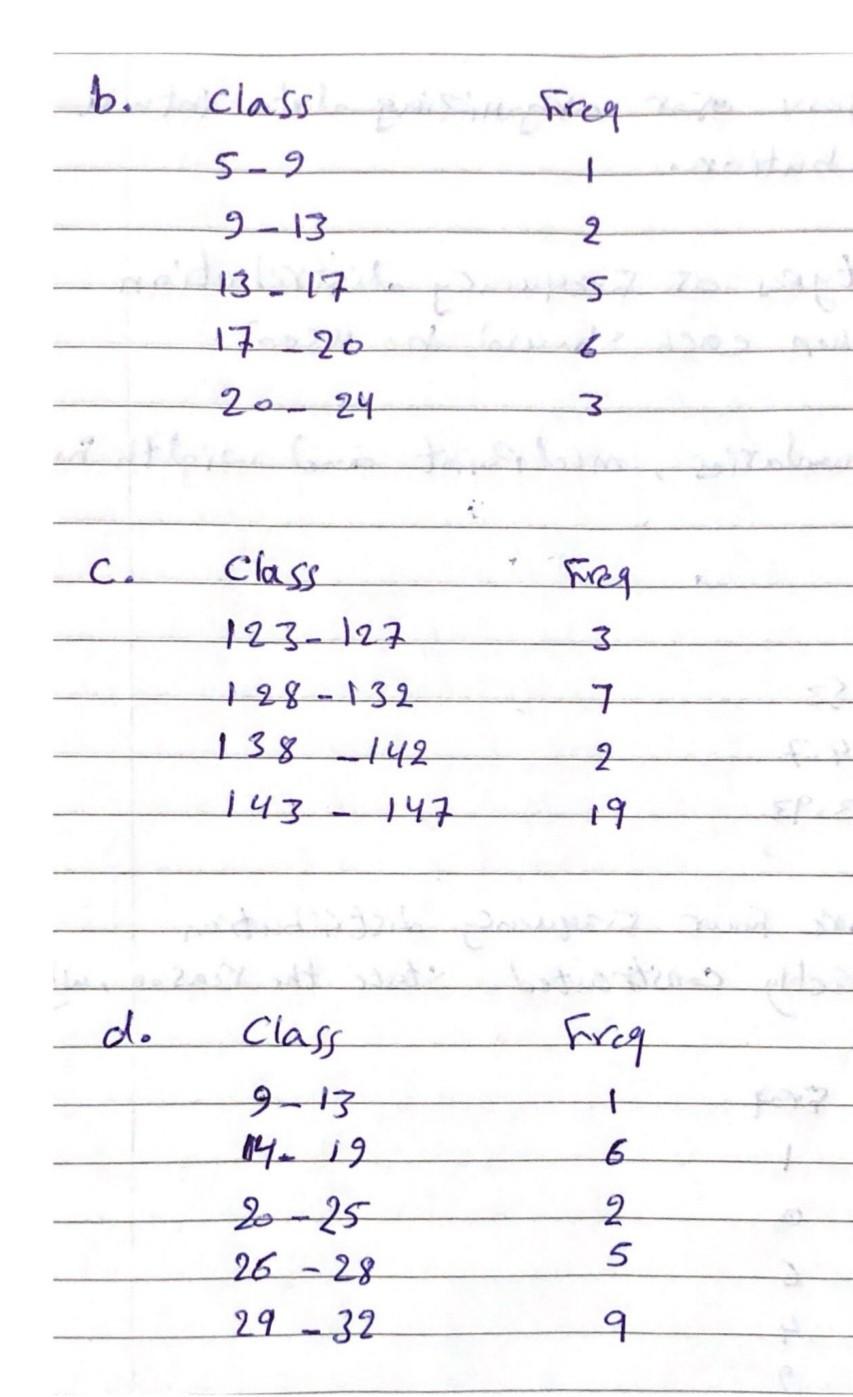 b. Class Freq
5-9 1
9-13 2
13-17 5
17-20 6
20-24 3
c. Class Freq
123-127 3
128-132 7
138-142 2
143-147 19
d. Class Freq
9-13 1
14-19 6
20-25 2
26-28 5
29-32 9